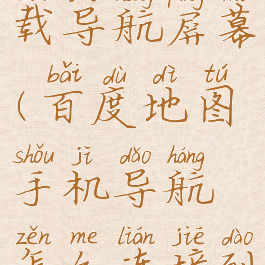 载导航屏幕
bǎi dù dì tú
(百度地图
shǒu jī dǎo háng
手机导航
zěn me lián jiē dào